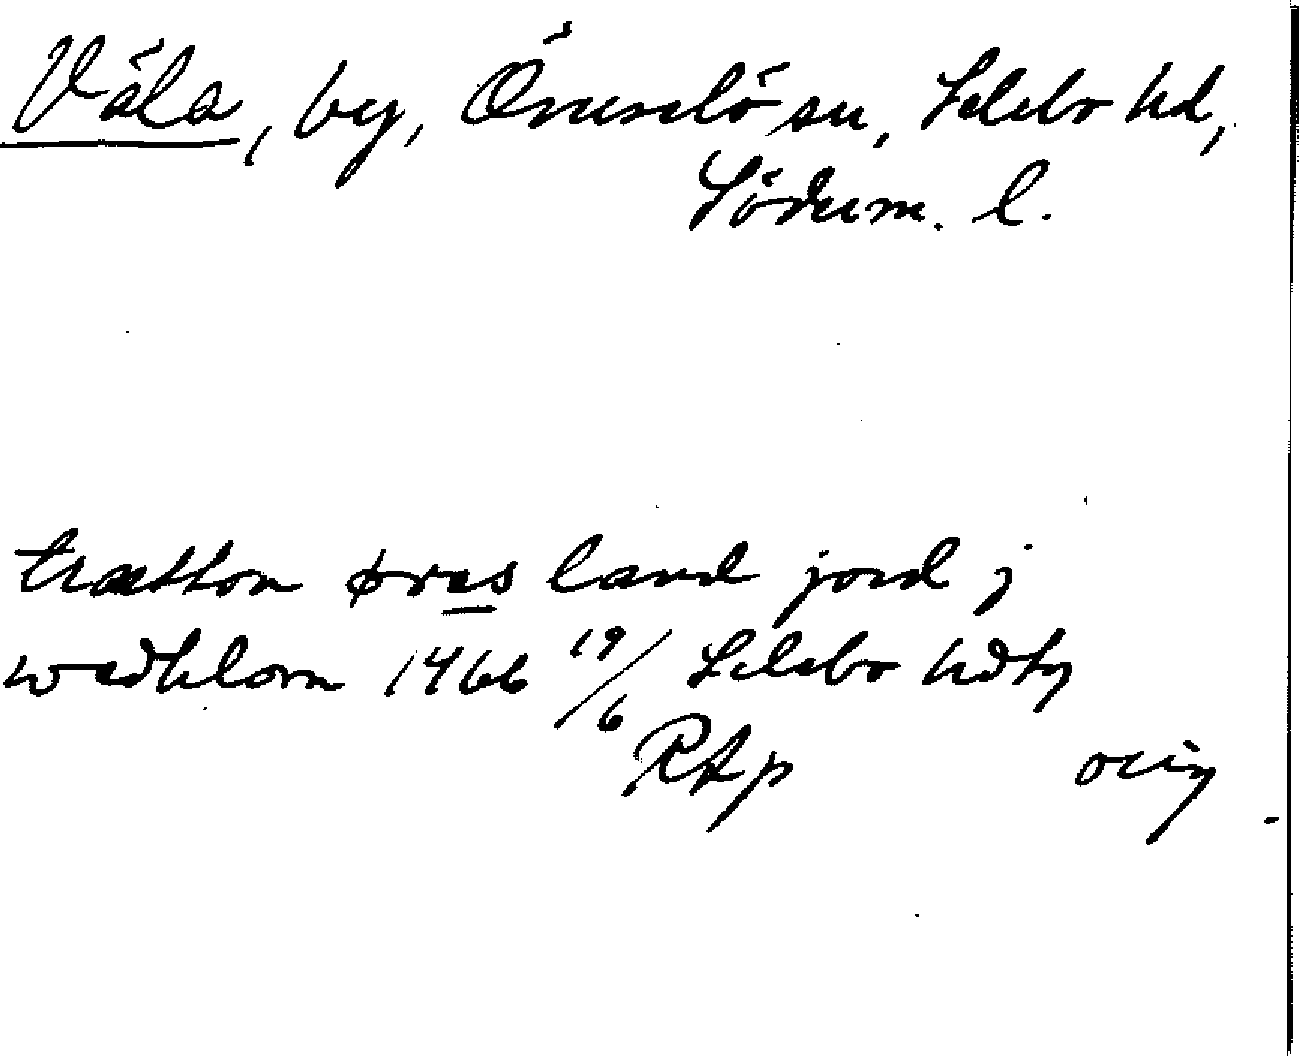 Väla, by, Överselö sn, Selebo hd,
Söderm. l.
trætton øres land jord j
wædhlom 1466 19/6 Selebo hdtg
RAp orig